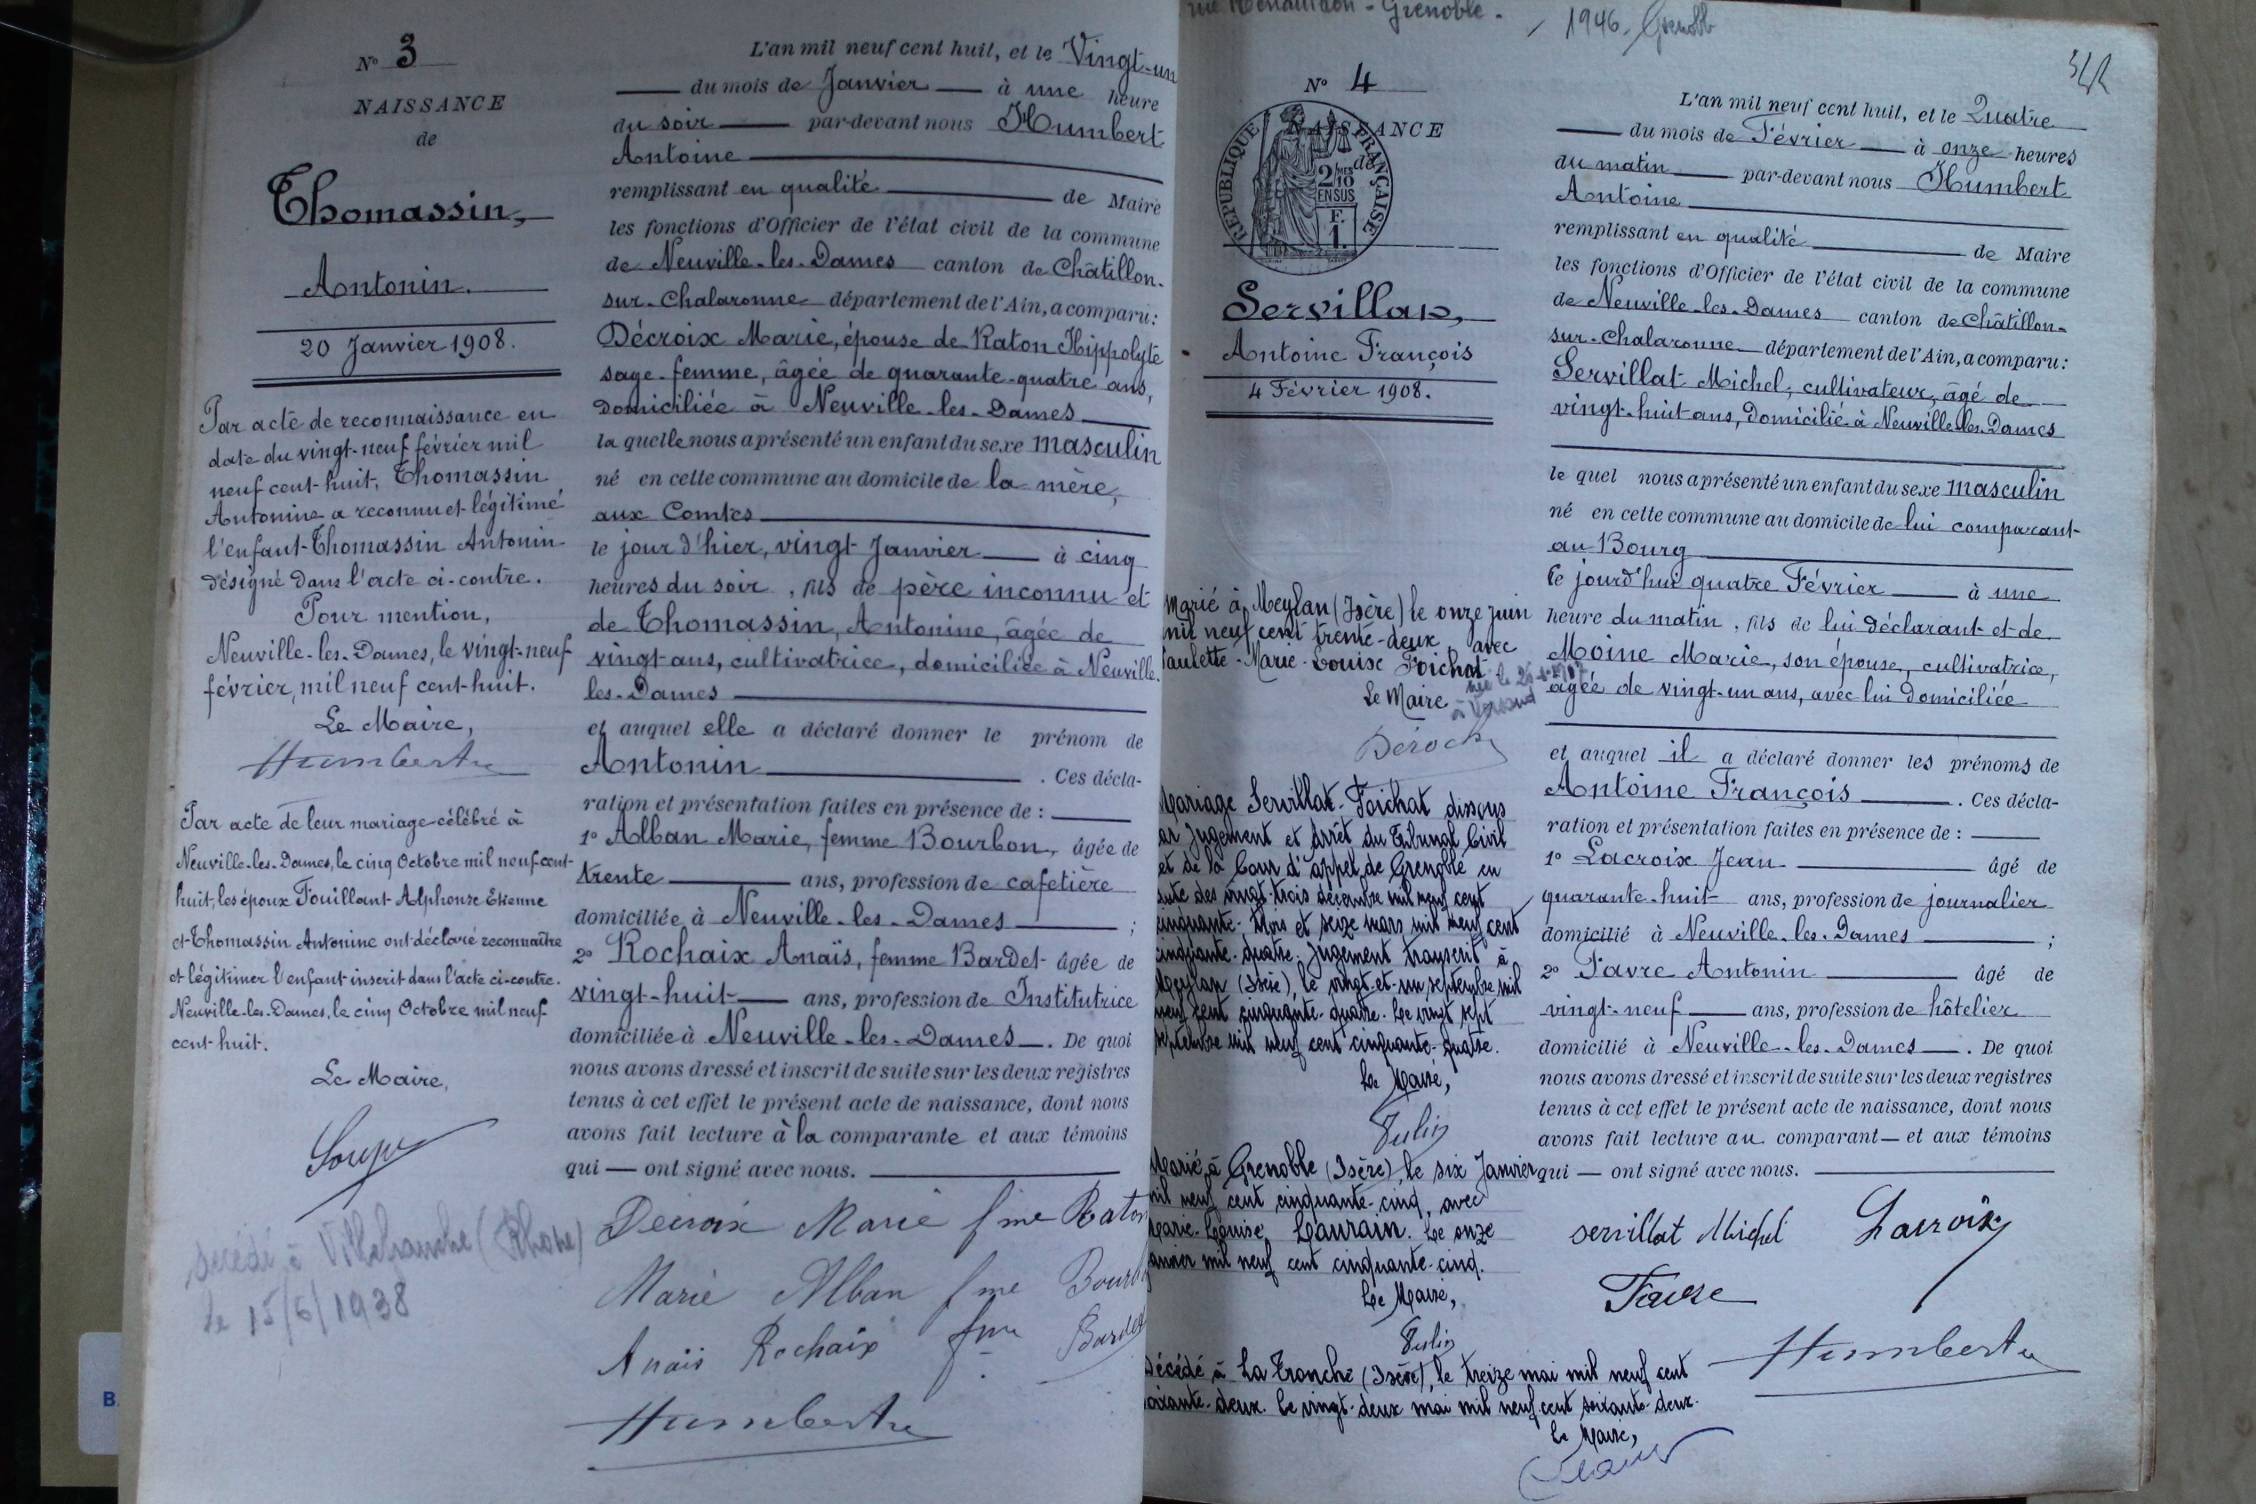 N° 3
NAISSANCE
de
Thomassin,
Antonin.
20 Janvier 1908.
Par acte de reconnaissance en
date du vingt-neuf février mil
neuf cent-huit, Thomassin
Antonine a reconnu et légitimé
l'enfant Thomassin Antonin
désigné dans l'acte ci-contre.
Pour mention,
Neuville-les-Dames, le vingt-neuf
février, mil neuf cent-huit.
Le Maire,
Humbert
Par acte de leur mariage célébré à
Neuville-les-Dames, le cinq Octobre mil neuf-cent-
huit, les époux Fouillant Alphonse Etienne
et Thomassin Antonine ont déclaré reconnaître
et légitimer l'enfant inscrit dans l'acte ci-contre.
Neuville-les-Dames, le cinq Octobre mil neuf
cent-huit.
Le Maire,
décédé à Villefranche (Rhône)
le 15/6/1938
L'an mil neuf cent huit, et le Vingt-un
du mois de Janvier à une heure
du soir par-devant nous Humbert
Antoine
remplissant en qualité de Maire
les fonctions d'Officier de l'état civil de la commune
de Neuville-les-Dames canton de Châtillon-
sur-Chalaronne département de l'Ain, a comparu:
Décroix Marie, épouse de Raton Hippolyte
sage-femme, âgée de quarante-quatre ans,
domiciliée à Neuville-les-Dames
la quelle nous a présenté un enfant du sexe masculin
né en cette commune au domicile de la mère,
aux Comtes
le jour d'hier, vingt Janvier à cinq
heures du soir, fils de père inconnu et
de Thomassin, Antonine, âgée de
vingt-ans, cultivatrice, domiciliée à Neuville-
les-Dames
et auquel elle a déclaré donner le prénom de
Antonin . Ces décla-
ration et présentation faites en présence de :
1° Alban Marie, femme Bourbon, âgée de
trente ans, profession de cafetière
domiciliée à Neuville-les-Dames ;
2° Rochaix Anaïs, femme Bardet âgée de
vingt-huit ans, profession de Institutrice
domiciliée à Neuville-les-Dames . De quoi
nous avons dressé et inscrit de suite sur les deux registres
tenus à cet effet le présent acte de naissance, dont nous
avons fait lecture à la comparante et aux témoins
qui — ont signé avec nous.
Decroix Marie fme Raton
Marie Alban fme
Anaïs Rochaix fme Bardet
Humbert
Grenoble - 1946. Grenoble
N° 4
NAISSANCE
de
RÉPUBLIQUE FRANÇAISE
2/10
EN SUS
F.
1.
Servillat,
Antoine François
4 Février 1908.
Marié à Meylan (Isère) le onze juin
mil neuf cent trente-deux avec
Paulette-Marie-Louise Foichat
née le
Le Maire
Mariage Servillat-Foichat dissous
par jugement et arrêt du Tribunal Civil
et de la Cour d'appel de Grenoble en
date des vingt-trois décembre mil neuf cent
cinquante-trois et seize mars mil neuf cent
cinquante-quatre. Jugement transcrit à
Meylan (Isère), le vingt-et-un septembre mil
neuf cent cinquante-quatre. Le vingt sept
septembre mil neuf cent cinquante-quatre.
Le Maire,
Marié à Grenoble (Isère), le six Janvier
mil neuf cent cinquante-cinq, avec
Marie-Louise Laurain. Le onze
janvier mil neuf cent cinquante-cinq.
Le Maire,
Décédé à La Tronche (Isère), le treize mai mil neuf cent
soixante-deux. Le vingt-deux mai mil neuf cent soixante-deux.
Le Maire,
L'an mil neuf cent huit, et le Quatre
du mois de Février à onze heures
du matin par-devant nous Humbert
Antoine
remplissant en qualité de Maire
les fonctions d'Officier de l'état civil de la commune
de Neuville-les-Dames canton de Châtillon-
sur-Chalaronne département de l'Ain, a comparu:
Servillat Michel, cultivateur, âgé de
vingt-huit ans, domicilié à Neuville-les-Dames
le quel nous a présenté un enfant du sexe masculin
né en cette commune au domicile de lui comparant
au Bourg
ce jourd'hui quatre Février à une
heure du matin, fils de lui déclarant et de
Moine Marie, son épouse, cultivatrice,
âgée de vingt-un ans, avec lui domiciliée
et auquel il a déclaré donner les prénoms de
Antoine François . Ces décla-
ration et présentation faites en présence de :
1° Lacroix Jean âgé de
quarante-huit ans, profession de journalier
domicilié à Neuville-les-Dames ;
2° Favre Antonin âgé de
vingt-neuf ans, profession de hôtelier
domicilié à Neuville-les-Dames . De quoi
nous avons dressé et inscrit de suite sur les deux registres
tenus à cet effet le présent acte de naissance, dont nous
avons fait lecture au comparant — et aux témoins
qui — ont signé avec nous.
servillat Michel Lacroix
Favre
Humbert